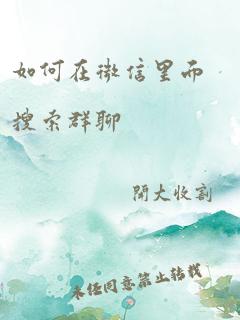 如何在微信里而
搜索群聊
開大收割
未经同意禁止转载